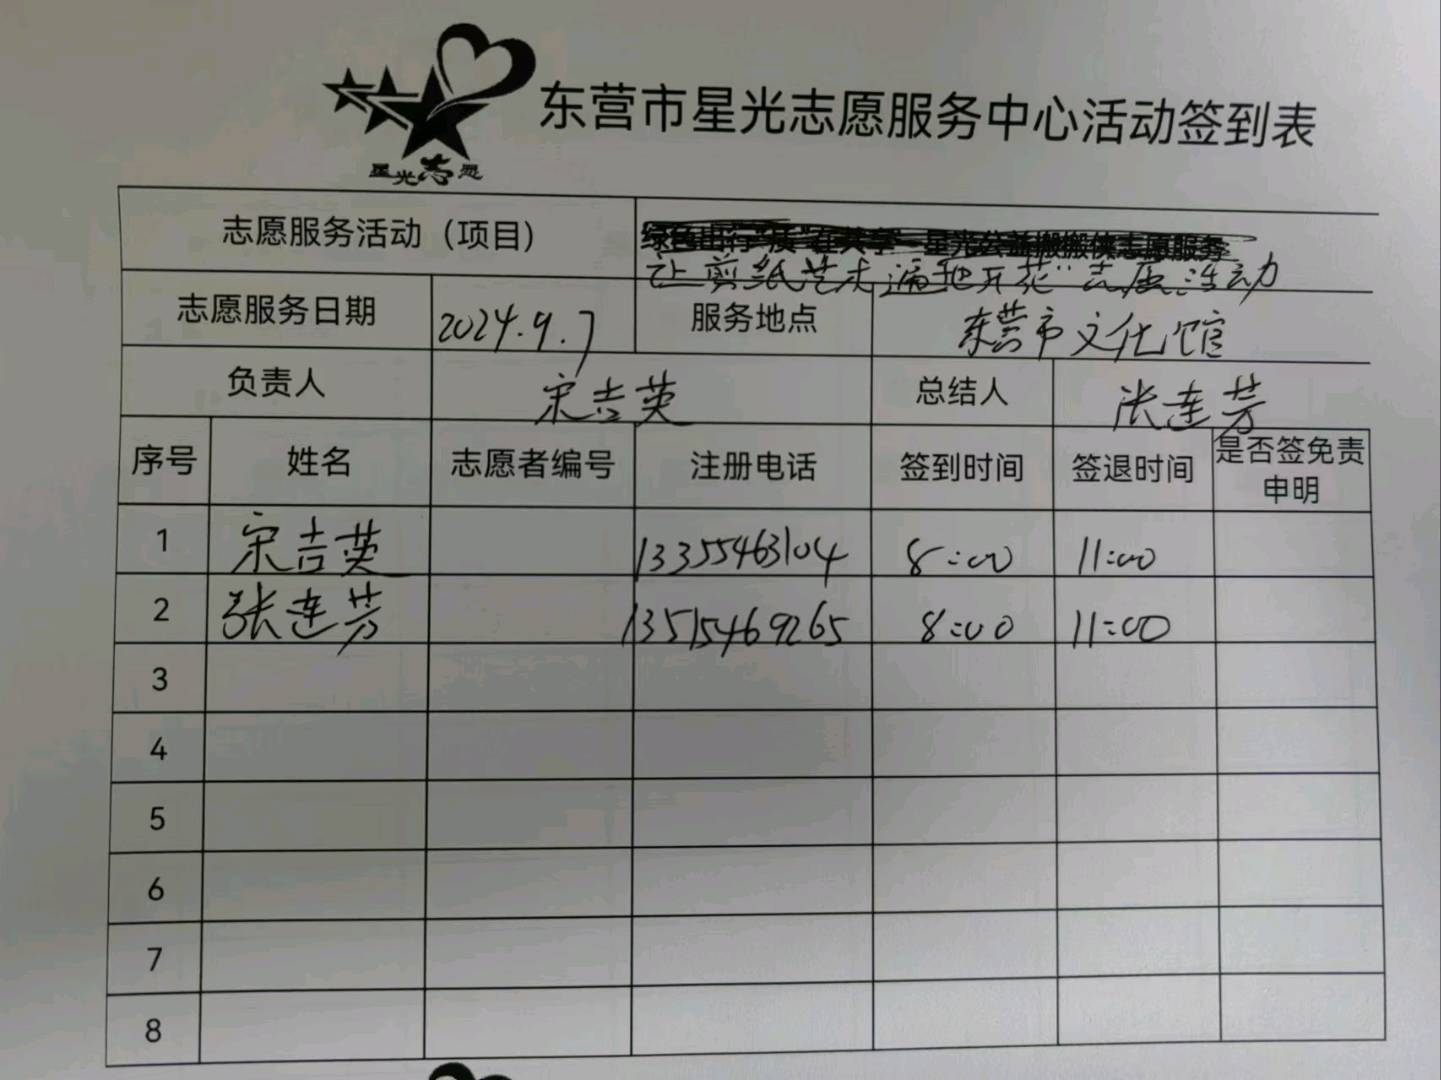 星光志愿
东营市星光志愿服务中心活动签到表
志愿服务活动（项目）
绿色出行"质"在共享"星光公益搬搬侠志愿服务
让剪纸艺术遍地开花"志愿活动
志愿服务日期 2024.9.7 服务地点 东营市文化馆
负责人 宋吉英 总结人 张连芳
序号 姓名 志愿者编号 注册电话 签到时间 签退时间 是否签免责申明
1 宋吉英 13355463104 8:00 11:00
2 张连芳 13515469265 8:00 11:00
3
4
5
6
7
8